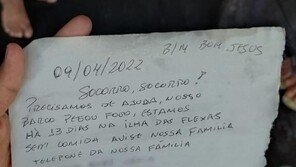 B/M BOM JESUS
09/04/2022
SOCORRO, SOCORRO,
PRECISAMOS DE AJUDA, NOSSO
BARCO PEGOU FOGO, ESTAMOS
HÁ 13 DIAS NA ILHA DAS FLEXAS
SEM COMIDA AVISE NOSSA FAMILIA
TELEFONE DA NOSSA FAMILIA